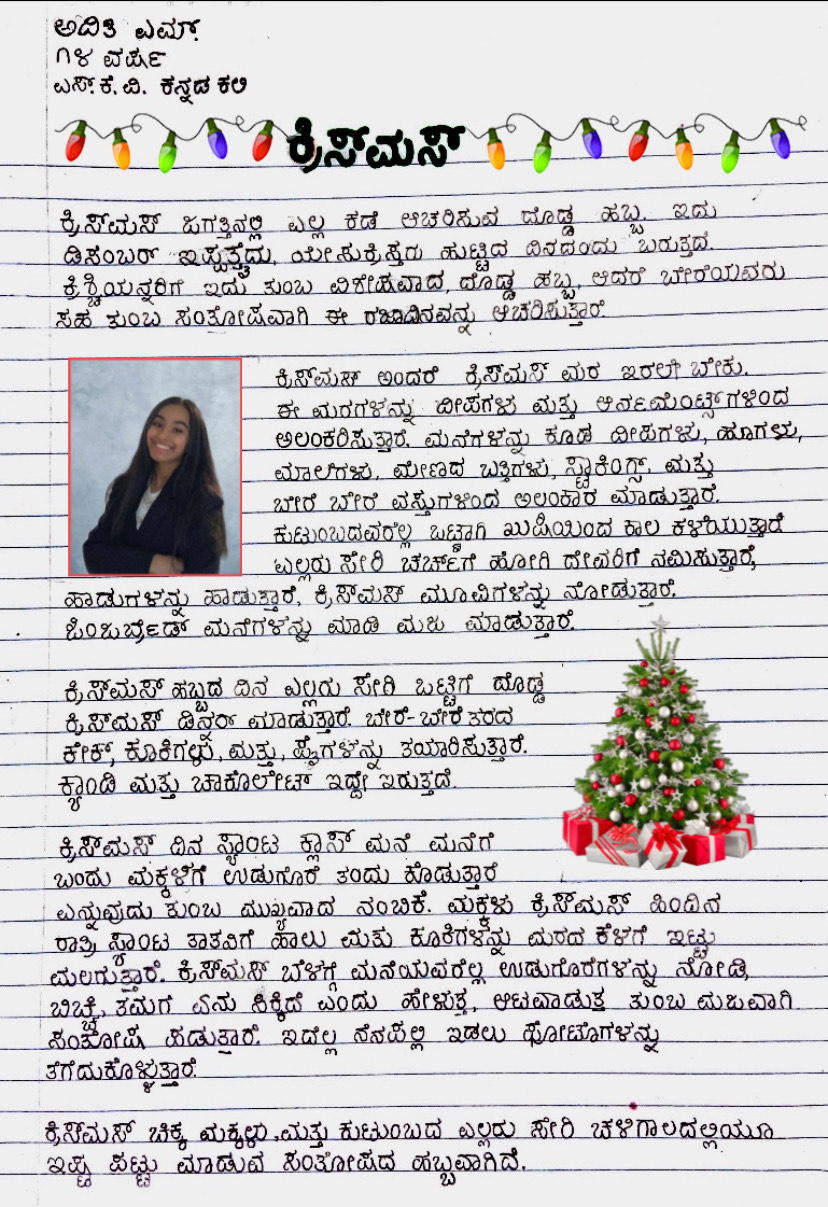 ಅದಿತಿ ಎಮ್.
೧೪ ವರ್ಷ
ಎಸ್.ಕೆ.ವಿ. ಕನ್ನಡ ಕಲಿ
ಕ್ರಿಸ್‌ಮಸ್
ಕ್ರಿಸ್‌ಮಸ್ ಜಗತ್ತಿನಲ್ಲಿ ಎಲ್ಲ ಕಡೆ ಆಚರಿಸುವ ದೊಡ್ಡ ಹಬ್ಬ. ಇದು
ಡಿಸಂಬರ್ ಇಪ್ಪತ್ತೈದು, ಯೇಸುಕ್ರಿಸ್ತರು ಹುಟ್ಟಿದ ದಿನದಂದು ಬರುತ್ತದೆ.
ಕ್ರಿಶ್ಚಿಯನ್ನರಿಗೆ ಇದು ತುಂಬ ವಿಶೇಷವಾದ, ದೊಡ್ಡ ಹಬ್ಬ, ಆದರೆ ಬೇರೆಯವರು
ಸಹ ತುಂಬ ಸಂತೋಷವಾಗಿ ಈ ರಜಾದಿನವನ್ನು ಆಚರಿಸುತ್ತಾರೆ.
ಕ್ರಿಸ್‌ಮಸ್ ಅಂದರೆ ಕ್ರಿಸ್‌ಮಸ್ ಮರ ಇರಲೇ ಬೇಕು.
ಈ ಮರಗಳನ್ನು ದೀಪಗಳು ಮತ್ತು ಆರ್ನಮೆಂಟ್ಸ್‌ಗಳಿಂದ
ಅಲಂಕರಿಸುತ್ತಾರೆ. ಮನೆಗಳನ್ನು ಕೂಡ ದೀಪಗಳು, ಹೂಗಳು,
ಮಾಲೆಗಳು, ಮೇಣದ ಬತ್ತಿಗಳು, ಸ್ಟಾಕಿಂಗ್ಸ್, ಮತ್ತು
ಬೇರೆ ಬೇರೆ ವಸ್ತುಗಳಿಂದ ಅಲಂಕಾರ ಮಾಡುತ್ತಾರೆ.
ಕುಟುಂಬದವರೆಲ್ಲ ಒಟ್ಟಾಗಿ ಖುಷಿಯಿಂದ ಕಾಲ ಕಳೆಯುತ್ತಾರೆ
ಎಲ್ಲರು ಸೇರಿ ಚರ್ಚ್‌ಗೆ ಹೋಗಿ ದೇವರಿಗೆ ನಮಿಸುತ್ತಾರೆ,
ಹಾಡುಗಳನ್ನು ಹಾಡುತ್ತಾರೆ, ಕ್ರಿಸ್‌ಮಸ್ ಮೂವಿಗಳನ್ನು ನೋಡುತ್ತಾರೆ.
ಜಿಂಜರ್ಬ್ರೆಡ್ ಮನೆಗಳನ್ನು ಮಾಡಿ ಮಜ ಮಾಡುತ್ತಾರೆ.
ಕ್ರಿಸ್‌ಮಸ್ ಹಬ್ಬದ ದಿನ ಎಲ್ಲರು ಸೇರಿ ಒಟ್ಟಿಗೆ ದೊಡ್ಡ
ಕ್ರಿಸ್‌ಮಸ್ ಡಿನ್ನರ್ ಮಾಡುತ್ತಾರೆ. ಬೇರೆ-ಬೇರೆ ತರದ
ಕೇಕ್, ಕೂಕಿಗಳು, ಮತ್ತು, ಪೈಗಳನ್ನು ತಯಾರಿಸುತ್ತಾರೆ.
ಕ್ಯಾಂಡಿ ಮತ್ತು ಚಾಕೊಲೇಟ್ ಇದ್ದೇ ಇರುತ್ತದೆ.
ಕ್ರಿಸ್‌ಮಸ್ ದಿನ ಸ್ಯಾಂಟ ಕ್ಲಾಸ್ ಮನೆ ಮನೆಗೆ
ಬಂದು ಮಕ್ಕಳಿಗೆ ಉಡುಗೊರೆ ತಂದು ಕೊಡುತ್ತಾರೆ
ಎನ್ನುವುದು ತುಂಬ ಮುಖ್ಯವಾದ ನಂಬಿಕೆ. ಮಕ್ಕಳು ಕ್ರಿಸ್‌ಮಸ್ ಹಿಂದಿನ
ರಾತ್ರಿ ಸ್ಯಾಂಟ ತಾತನಿಗೆ ಹಾಲು ಮತು ಕೂಕಿಗಳನ್ನು ಮರದ ಕೆಳಗೆ ಇಟ್ಟು
ಮಲಗುತ್ತಾರೆ. ಕ್ರಿಸ್‌ಮಸ್ ಬೆಳಗ್ಗೆ ಮನೆಯವರೆಲ್ಲ ಉಡುಗೊರೆಗಳನ್ನು ನೋಡಿ,
ಬಿಚ್ಚಿ, ತಮಗೆ ಏನು ಸಿಕ್ಕಿದೆ ಎಂದು ಹೇಳುತ್ತ, ಆಟವಾಡುತ್ತ ತುಂಬ ಮಜವಾಗಿ
ಸಂತೋಷ ಪಡುತ್ತಾರೆ. ಇದೆಲ್ಲ ನೆನಪಲ್ಲಿ ಇಡಲು ಫೋಟೊಗಳನ್ನು
ತೆಗೆದುಕೊಳ್ಳುತ್ತಾರೆ
ಕ್ರಿಸ್‌ಮಸ್ ಚಿಕ್ಕ ಮಕ್ಕಳು, ಮತ್ತು ಕುಟುಂಬದ ಎಲ್ಲರು ಸೇರಿ ಚಳಿಗಾಲದಲ್ಲಿಯೂ
ಇಷ್ಟ ಪಟ್ಟು ಮಾಡುವ ಸಂತೋಷದ ಹಬ್ಬವಾಗಿದೆ.